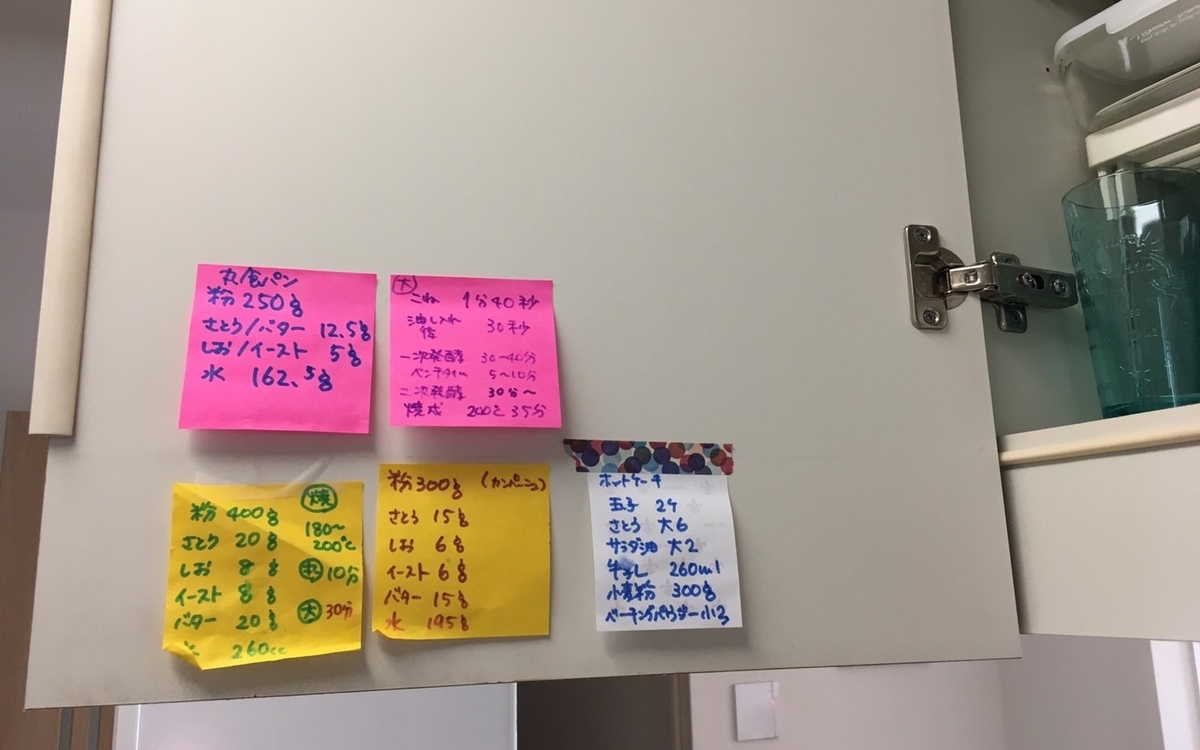 丸食パン
粉 250g
さとう/バター 12.5g
しお/イースト 5g
水 162.5g
大
こね 1分40秒
油しいれ後 30秒
一次発酵 30〜40分
ベンチタイム 5〜10分
二次発酵 30分〜
焼成 200℃ 35分
粉 400g
さとう 20g
しお 8g
イースト 8g
バター 20g
260cc
焼
180〜200℃
10分
大 30分
粉 300g (カンパーニュ)
さとう 15g
しお 6g
イースト 6g
バター 15g
水 195g
ホットケーキ
玉子 2ケ
さとう 大6
サラダ油 大2
牛乳 260ml
小麦粉 300g
ベーキングパウダー 小2